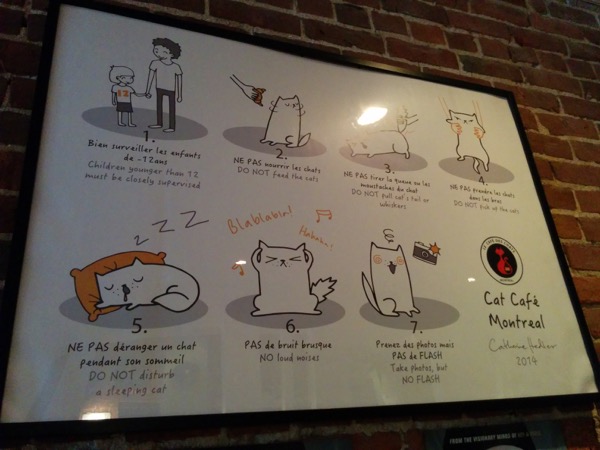 12
1.
Bien surveiller les enfants
de -12ans
Children younger than 12
must be closely supervised
2.
NE PAS nourrir les chats
DO NOT feed the cats
3.
NE PAS tirer la queue ou les
moustaches du chat
DO NOT pull cat's tail or
whiskers
4.
NE PAS prendre les chats
dans les bras
DO NOT pick up the cats
ZZZ
5.
NE PAS déranger un chat
pendant son sommeil
DO NOT disturb
a sleeping cat
Blablabla!
Hahaha!
6.
PAS de bruit brusque
NO loud noises
7.
Prenez des photos mais
PAS de FLASH
Take photos, but
NO FLASH
Cat Café
Montreal
2014
FROM THE VISIONARY MINDS OF